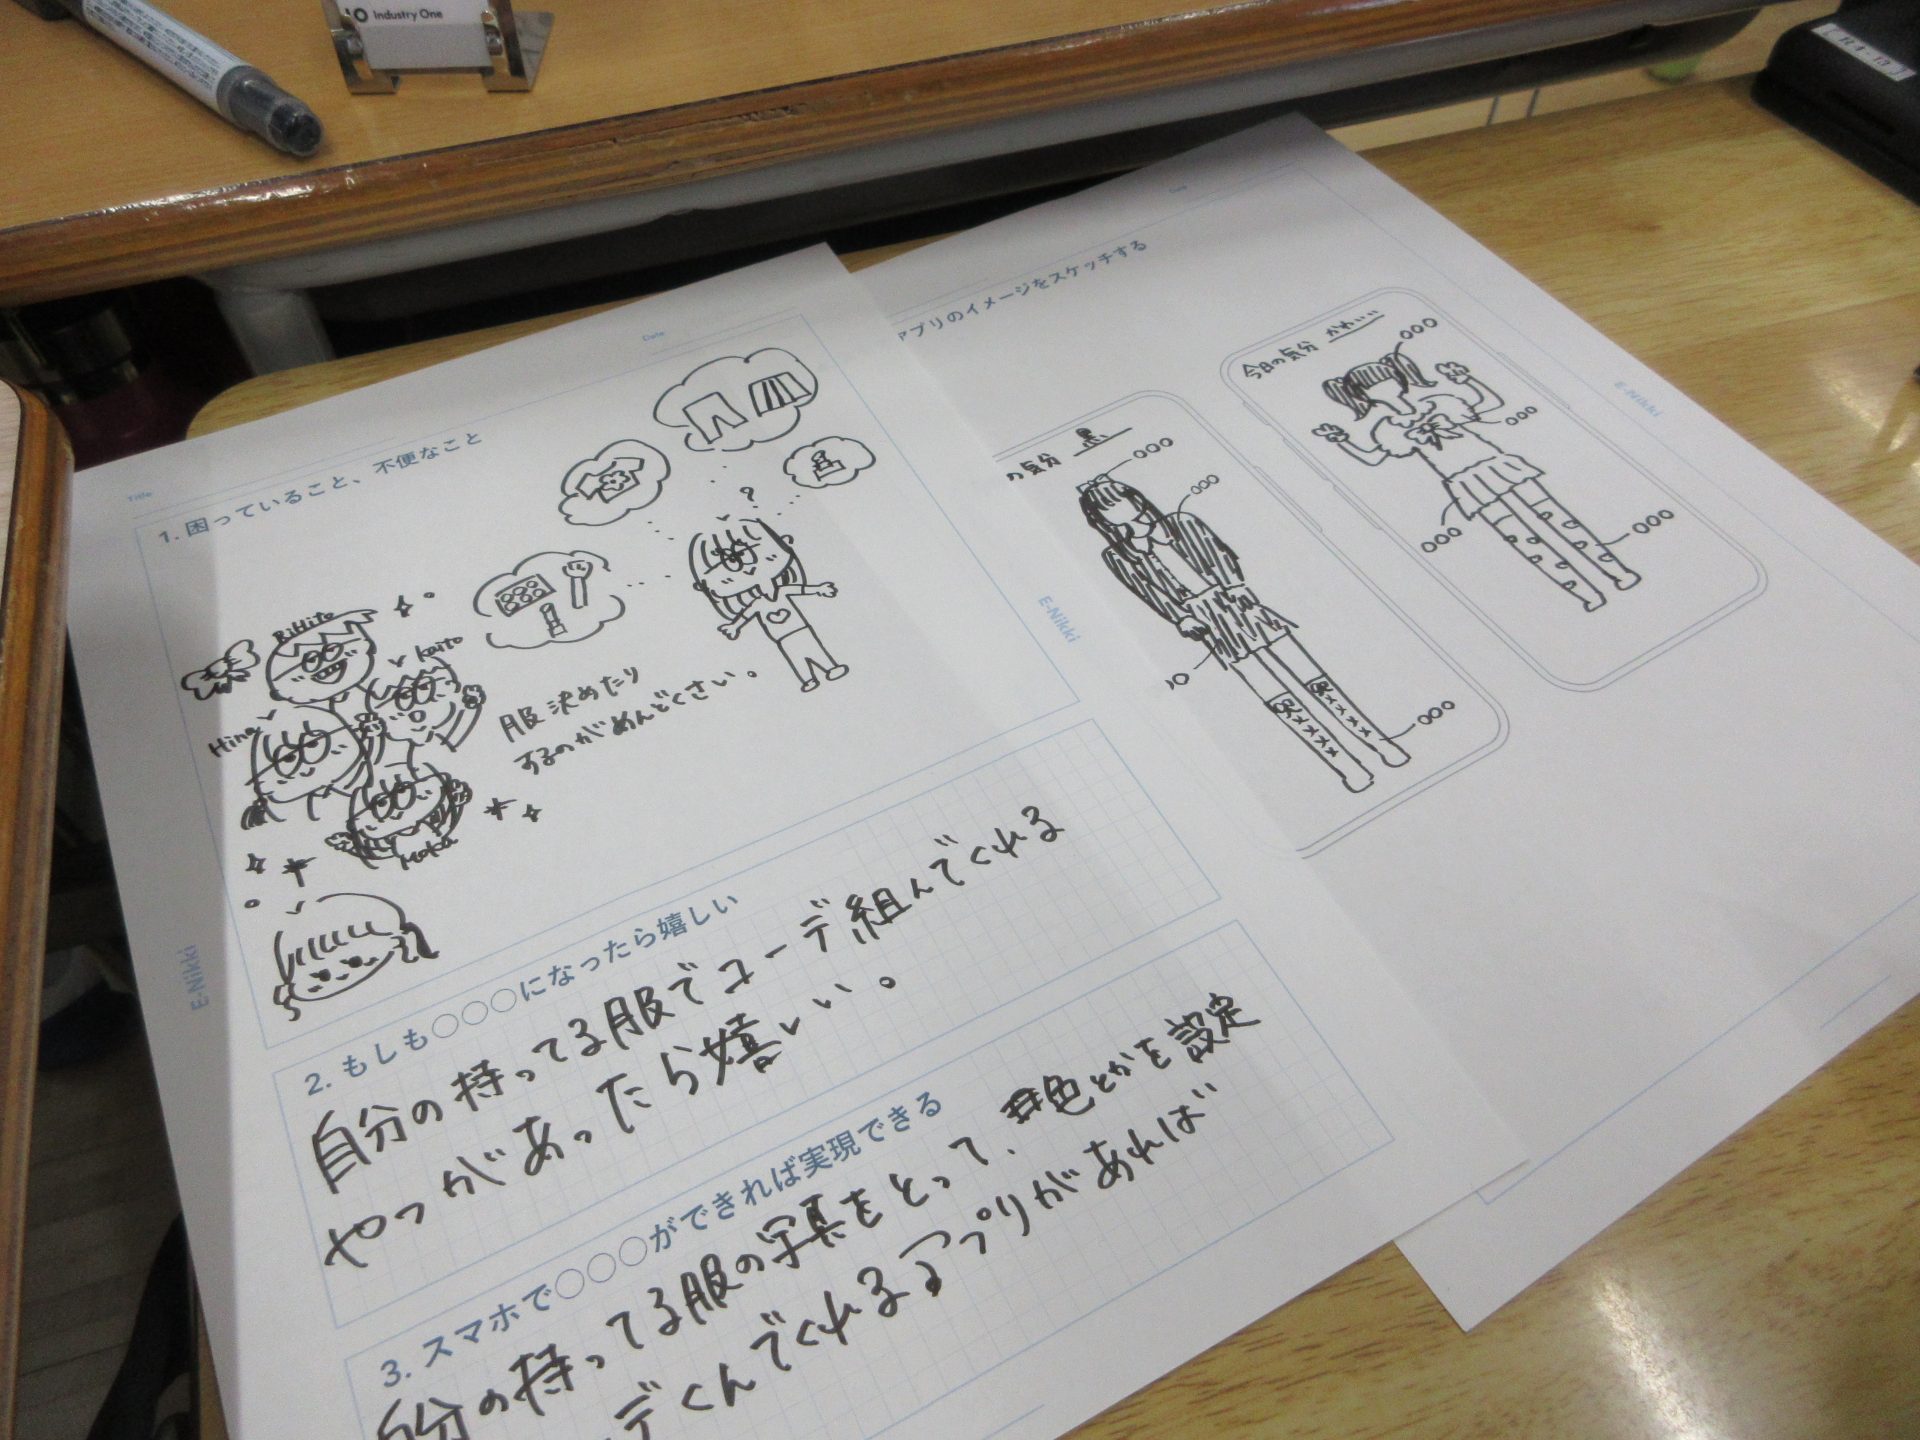 Industry One
Title
Date
1. 困っていること、不便なこと
RiHito
Kaito
Hina
Moka
?
服決めたり
するのがめんどくさい。
2. もしも○○○になったら嬉しい
自分の持ってる服でコーデ組んでくれる
やつがあったら嬉しい。
3. スマホで○○○ができれば実現できる
自分の持ってる服の写真をとって、色とかを設定
デくんでくれるアプリがあれば
E-Nikki
E-Nikki
Date
アプリのイメージをスケッチする
の気分 黒
○○○
○○○
○○○
今日の気分 かわいい
○○○
○○○
○○○
○○○
E-Nikki